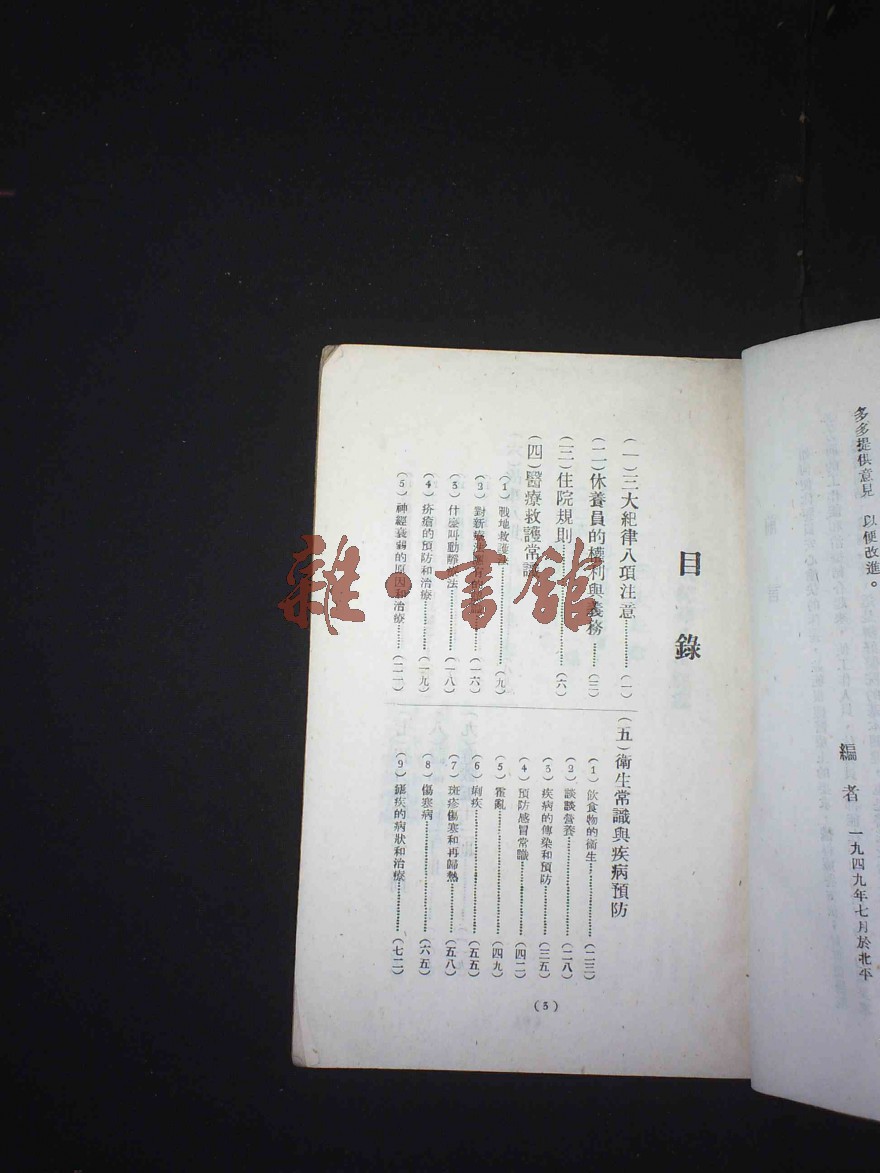 多多提供意見 以便改進。
編者 一九四九年七月於北平
目錄
(一)三大紀律八項注意……(一)
(二)休養員的權利與義務……(三)
(三)住院規則……(六)
(四)醫療救護常識
(1)戰地救護法……(九)
(2)對新療法……(一六)
(3)什麼叫動靜療法……(一八)
(4)疥瘡的預防和治療……(一九)
(5)神經衰弱的原因和治療……(二一)
(五)衛生常識與疾病預防
(1)飲食物的衛生……(二三)
(2)談談營養……(二八)
(3)疾病的傳染和預防……(三五)
(4)預防感冒常識……(四二)
(5)霍亂……(四九)
(6)痢疾……(五五)
(7)斑疹傷寒和再歸熱……(五八)
(8)傷寒病……(六五)
(9)瘧疾的病狀和治療……(七二)
(5)
雜·書館